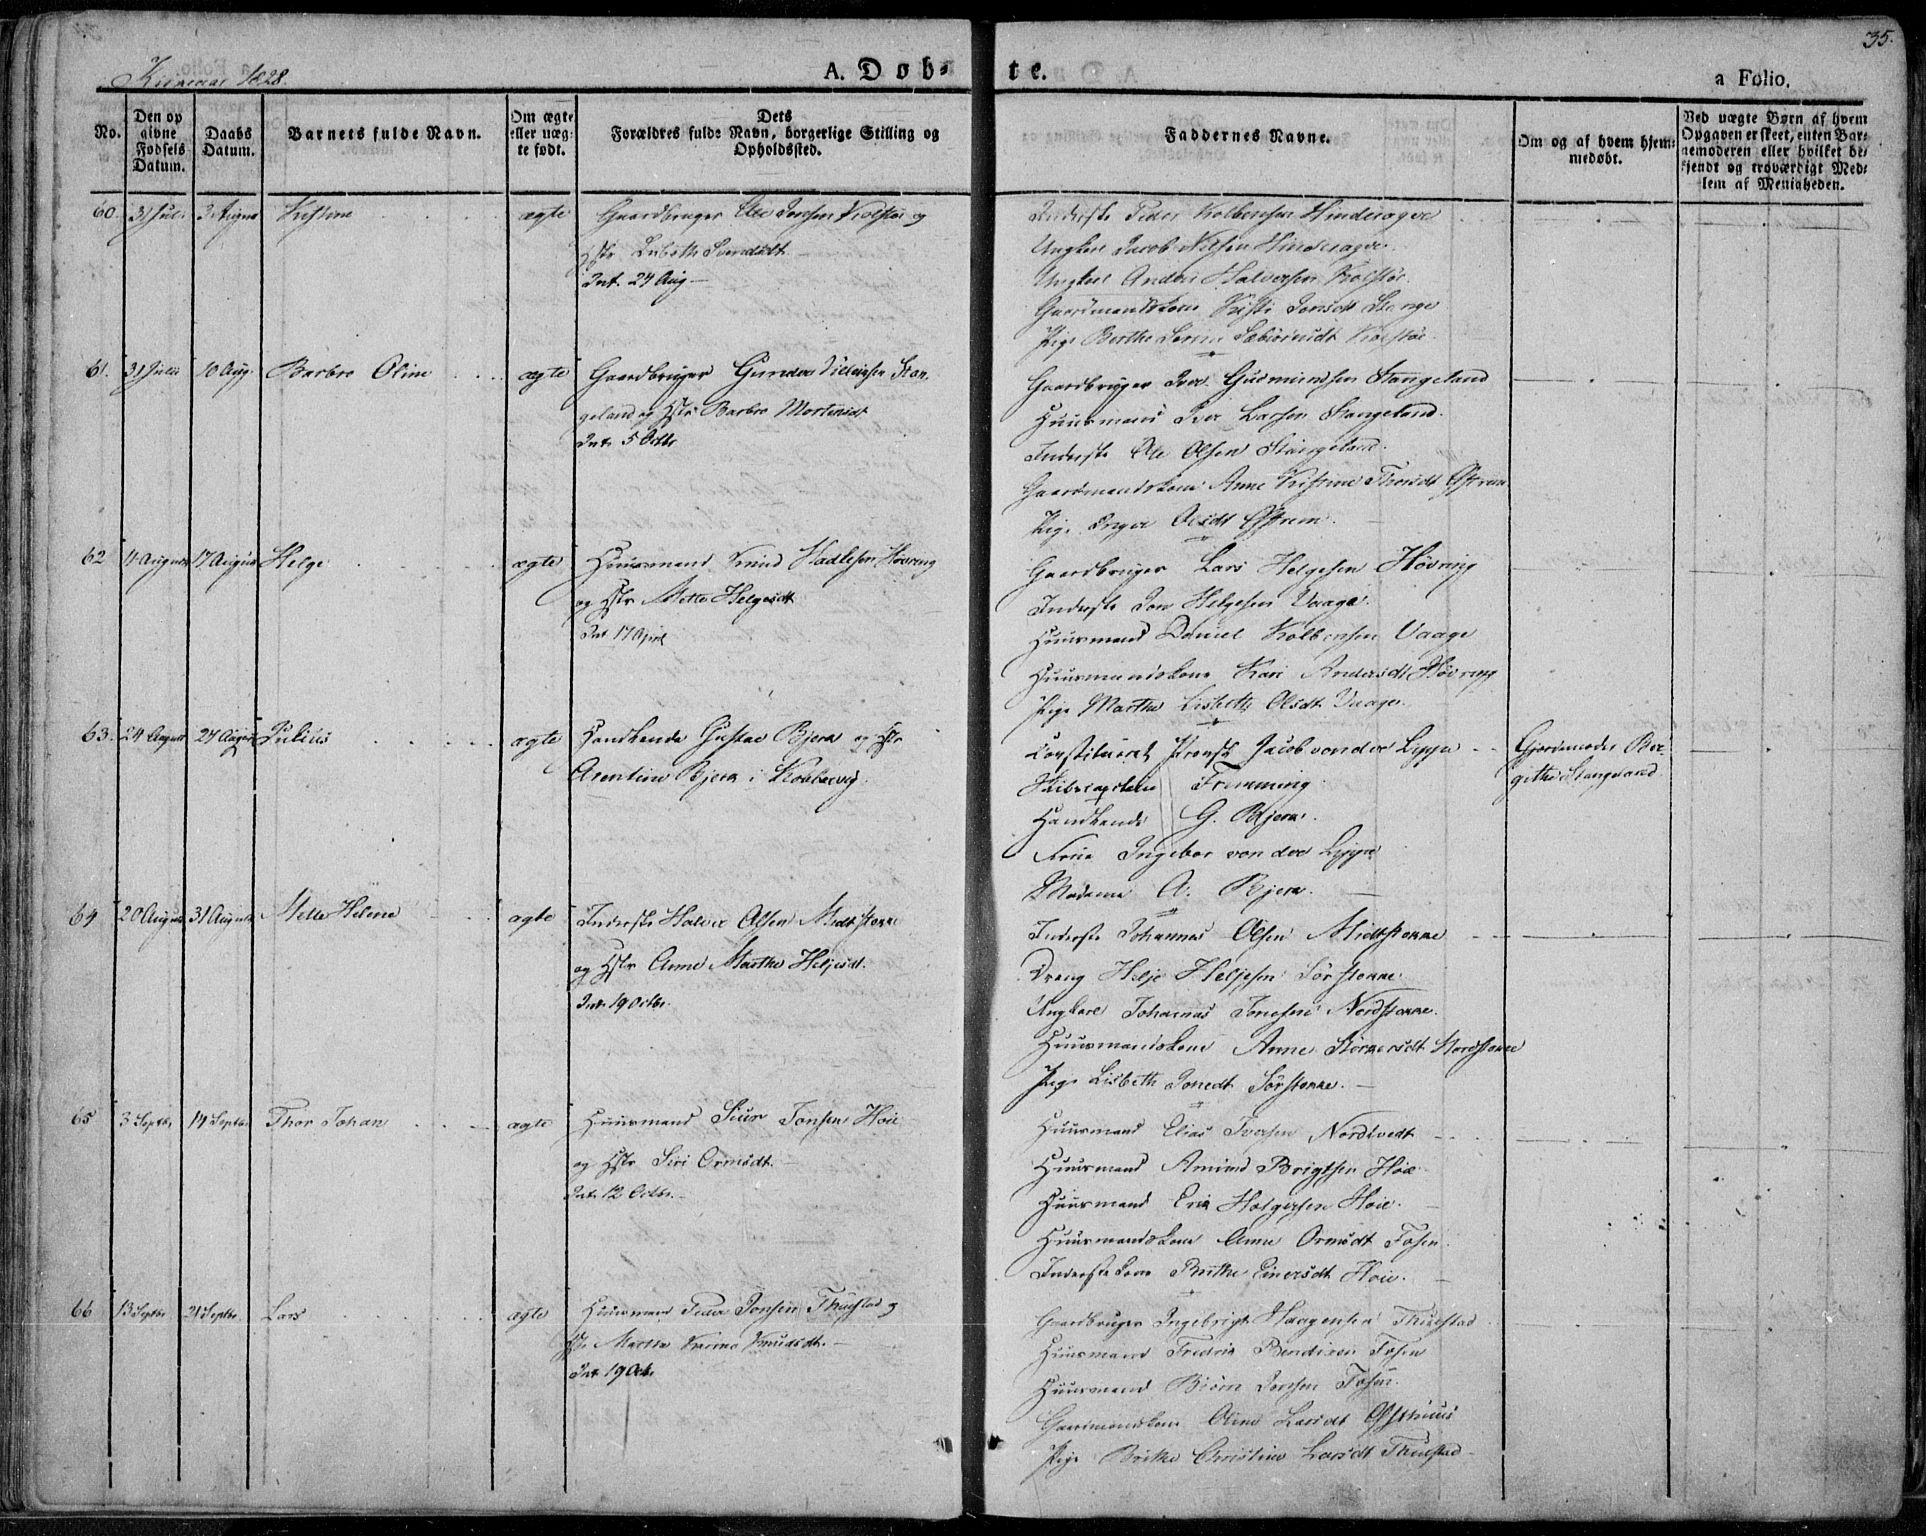 35.
1828.
A. Døb-te.
a Folio.
No.
Den op
givne
Fødsels
Datum.
Daabs
Datum.
Barnets fulde Navn.
Om ægte
eller uæg-
te født.
Dets
Forældres fulde Navn, borgerlige Stilling og
Opholdssted.
Faddernes Navne.
Om og af hvem hjem-
medøbt.
Ved uægte Børn af hvem
Opgaven er skeet, enten Bar-
nemoderen eller hvilket be-
kjendt og troværdigt Med-
lem af Menigheden.
60. 31 Juli 3 August ægte Gaardbruger Ole Jonsen Kolstøe og
Hstr Lisbeth Svendsdt
Int. 24 Aug
Inderste Peder Kolbensen Hinderager
Ungkarl Jacob Nilsen Hinderager
Ungkarl Anders Halvorsen Kolstøe
Gaardmandskone Kisti Jonsdt Stange
Pige Berthe Kolstøe
61. 31 Juli 10 Aug. Barbro Oline ægte Gaardbruger Gunder Stan-
geland og Hstr Barbro Mortensdt
Int. 5 Octbr
Gaardbruger Iver Gudmundsen Stangeland
Huusmand Iver Larsen Stangeland.
Inderste Ole Olsen Stangeland.
Gaardmandskone Anne Kristine Thorsdt Østrem
Pige Inger Olsdt Østrem
62 14 August 17 August Helge ægte Huusmand Hadlesen Høvring
og Hstr Mette Helgesdt
Int 17 April
Gaardbruger Lars Helgesen Høvring
Inderste Jon Helgesen Vaage.
Huusmand Daniel Kolbensen Vaage
Huusmandskone Kari Andersdt Høvring
Pige Marthe Lisbeth Olsdt Vaage.
63. 24 August 27 August Julius ægte Handlende Gustav Bjern og Hstr
Arentine Bjern i Kobbervig.
Constitueret Provst Jacob von der Lippe
Skibscapitain Fremming
Handlende G. Bjern.
Frue Ingebor von der Lippe
Madame A. Bjern.
Gjordemoder Bir-
githe Stangeland
64 20 August 31 August Mette Helene ægte Inderste Halvor Olsen Midtstokke
og Hstr Anne Marthe Heljesdt.
Int. 19 Octbr.
Inderste Johannes Olsen Midtstokke
Dreng Helje Heljesen Sørstokke
Ungkarl Johannes Jonesen Nordstokke.
Huusmandskone Anne Nordstokke
Pige Lisbeth Jonedt Sørstokke.
65 3 Septbr 14 Septbr Thor Johan ægte Huusmand Siur Jonsen Høie
og Hstr Siri Ormsdt.
Int. 12 Octbr.
Huusmand Elias Iversen Nordtvedt
Huusmand Amund Brigtsen Høie
Huusmand Erik Holgersen Høie.
Huusmandskone Anne Ormsdt Fosen
Inderstekone Birthe Einersdt Høie.
66 13 Septbr 21 Septbr. Lars ægte Huusmand Peder Jonsen Thuestad og
Hstr Marthe Knudsdt.
Int 19 Octbr
Gaardbruger Ingebrigt Haagensen Thuestad
Huusmand Fredrik Bendixen Fosen
Huusmand Biørn Jonsen Fosen.
Gaardmandskone Oline Larsdt Østhuus
Pige Brithe Christine Larsdt Thuestad